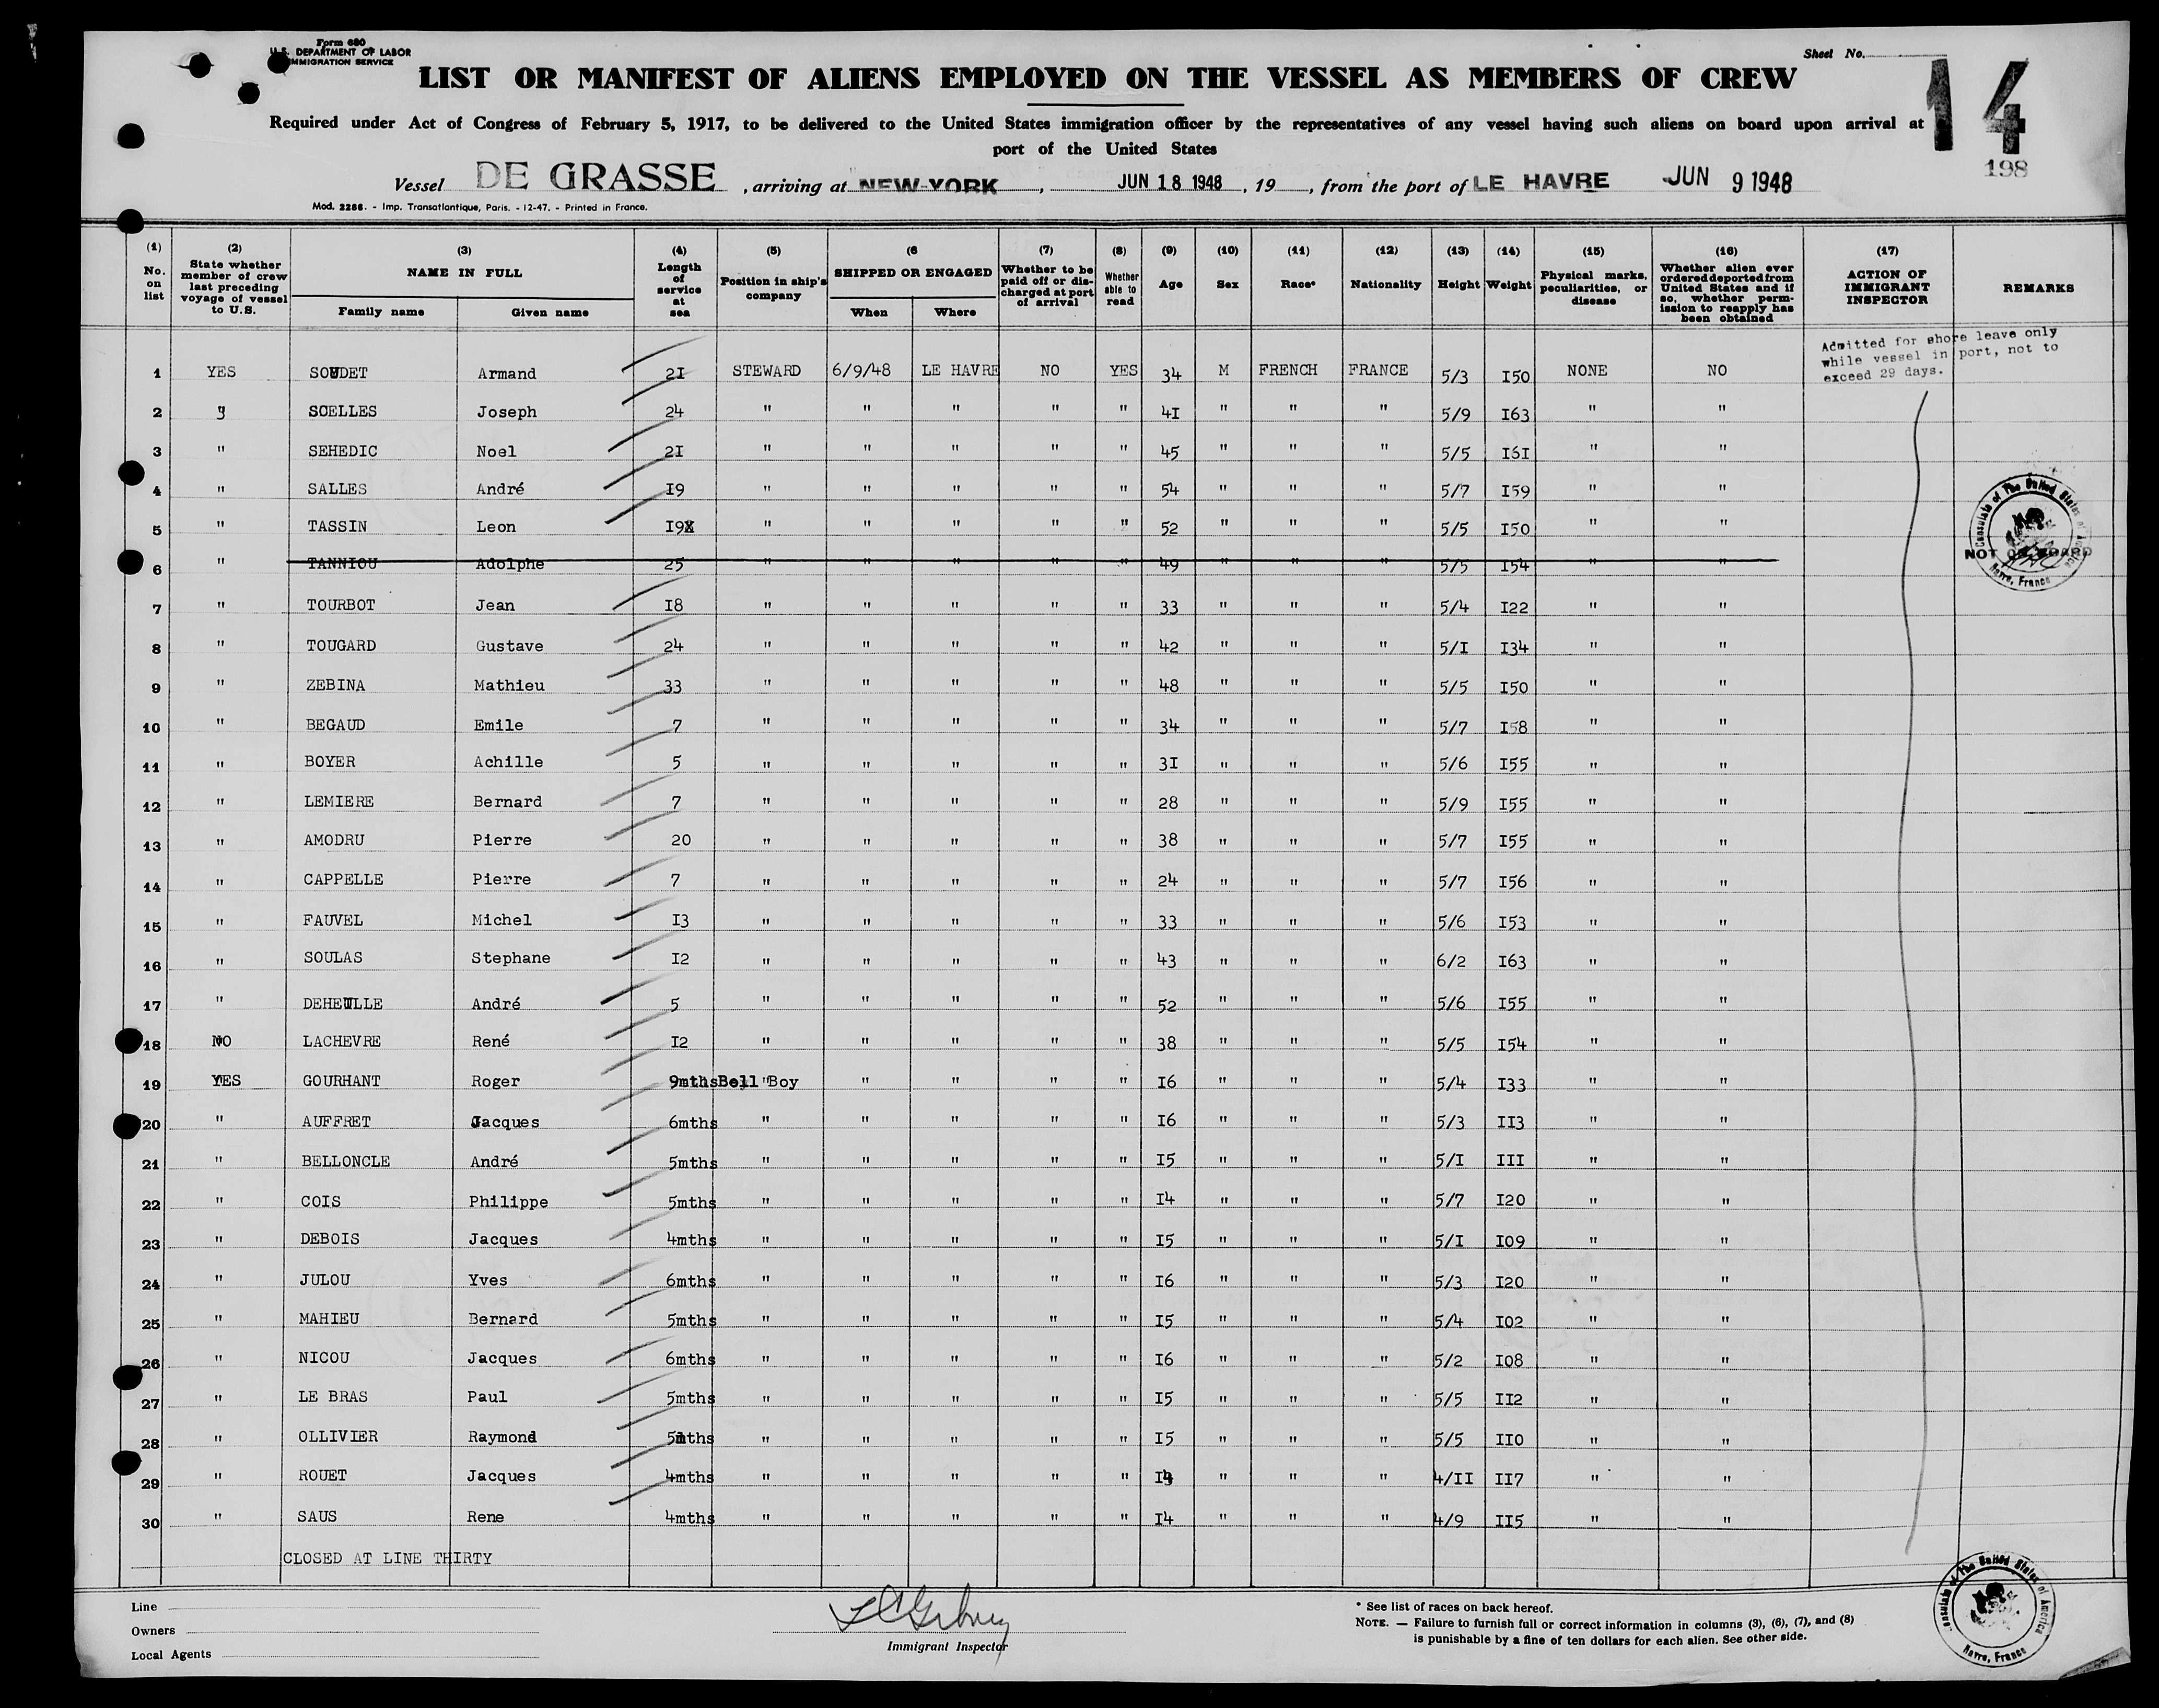 Form 680
U.S. DEPARTMENT OF LABOR
IMMIGRATION SERVICE
Sheet No.
14
198
LIST OR MANIFEST OF ALIENS EMPLOYED ON THE VESSEL AS MEMBERS OF CREW
Required under Act of Congress of February 5, 1917, to be delivered to the United States immigration officer by the representatives of any vessel having such aliens on board upon arrival at
port of the United States
Vessel DE GRASSE , arriving at NEW-YORK , JUN 18 1948 , 19 , from the port of LE HAVRE JUN 9 1948
Mod. 2286. - Imp. Transatlantique, Paris. - 12-47. - Printed in France.
(1) No. on list (2) State whether member of crew last preceding voyage of vessel to U.S. (3) NAME IN FULL Family name Given name (4) Length of service at sea (5) Position in ship's company (6 SHIPPED OR ENGAGED When Where (7) Whether to be paid off or discharged at port of arrival (8) Whether able to read (9) Age (10) Sex (11) Race* (12) Nationality (13) Height (14) Weight (15) Physical marks, peculiarities, or disease (16) Whether alien ever ordered deported from United States and if so, whether permission to reapply has been obtained (17) ACTION OF IMMIGRANT INSPECTOR REMARKS
Admitted for shore leave only
while vessel in port, not to
exceed 29 days.
1 YES SOUDET Armand 2I STEWARD 6/9/48 LE HAVRE NO YES 34 M FRENCH FRANCE 5/3 I50 NONE NO
2 " SCELLES Joseph 24 " " " " " 4I " " " 5/9 I63 " "
3 " SEHEDIC Noel 2I " " " " " 45 " " " 5/5 I6I " "
4 " SALLES André I9 " " " " " 54 " " " 5/7 I59 " "
5 " TASSIN Leon I9 " " " " " 52 " " " 5/5 I50 " "
6 " TANNIOU Adolphe 25 " " " " " 49 " " " 5/5 I54 " " NOT ON BOARD
7 " TOURBOT Jean I8 " " " " " 33 " " " 5/4 I22 " "
8 " TOUGARD Gustave 24 " " " " " 42 " " " 5/I I34 " "
9 " ZEBINA Mathieu 33 " " " " " 48 " " " 5/5 I50 " "
10 " BEGAUD Emile 7 " " " " " 34 " " " 5/7 I58 " "
11 " BOYER Achille 5 " " " " " 3I " " " 5/6 I55 " "
12 " LEMIERE Bernard 7 " " " " " 28 " " " 5/9 I55 " "
13 " AMODRU Pierre 20 " " " " " 38 " " " 5/7 I55 " "
14 " CAPPELLE Pierre 7 " " " " " 24 " " " 5/7 I56 " "
15 " FAUVEL Michel I3 " " " " " 33 " " " 5/6 I53 " "
16 " SOULAS Stephane I2 " " " " " 43 " " " 6/2 I63 " "
17 " DEHEULLE André 5 " " " " " 52 " " " 5/6 I55 " "
18 NO LACHEVRE René I2 " " " " " 38 " " " 5/5 I54 " "
19 YES GOURHANT Roger 9mths Bell Boy " " " " I6 " " " 5/4 I33 " "
20 " AUFFRET Jacques 6mths " " " " " I6 " " " 5/3 II3 " "
21 " BELLONCLE André 5mths " " " " " I5 " " " 5/I III " "
22 " COIS Philippe 5mths " " " " " I4 " " " 5/7 I20 " "
23 " DEBOIS Jacques 4mths " " " " " I5 " " " 5/I I09 " "
24 " JULOU Yves 6mths " " " " " I6 " " " 5/3 I20 " "
25 " MAHIEU Bernard 5mths " " " " " I5 " " " 5/4 I02 " "
26 " NICOU Jacques 6mths " " " " " I6 " " " 5/2 I08 " "
27 " LE BRAS Paul 5mths " " " " " I5 " " " 5/5 II2 " "
28 " OLLIVIER Raymond 5mths " " " " " I5 " " " 5/5 II0 " "
29 " ROUET Jacques 4mths " " " " " " " " 4/II II7 " "
30 " SAUS Rene 4mths " " " " " I4 " " " 4/9 II5 " "
CLOSED AT LINE THIRTY
Consulate of The United States of America
Havre, France
Line
Owners
Local Agents
Immigrant Inspector
* See list of races on back hereof.
NOTE. — Failure to furnish full or correct information in columns (3), (6), (7), and (8)
is punishable by a fine of ten dollars for each alien. See other side.
Consulate of The United States of America
Havre, France